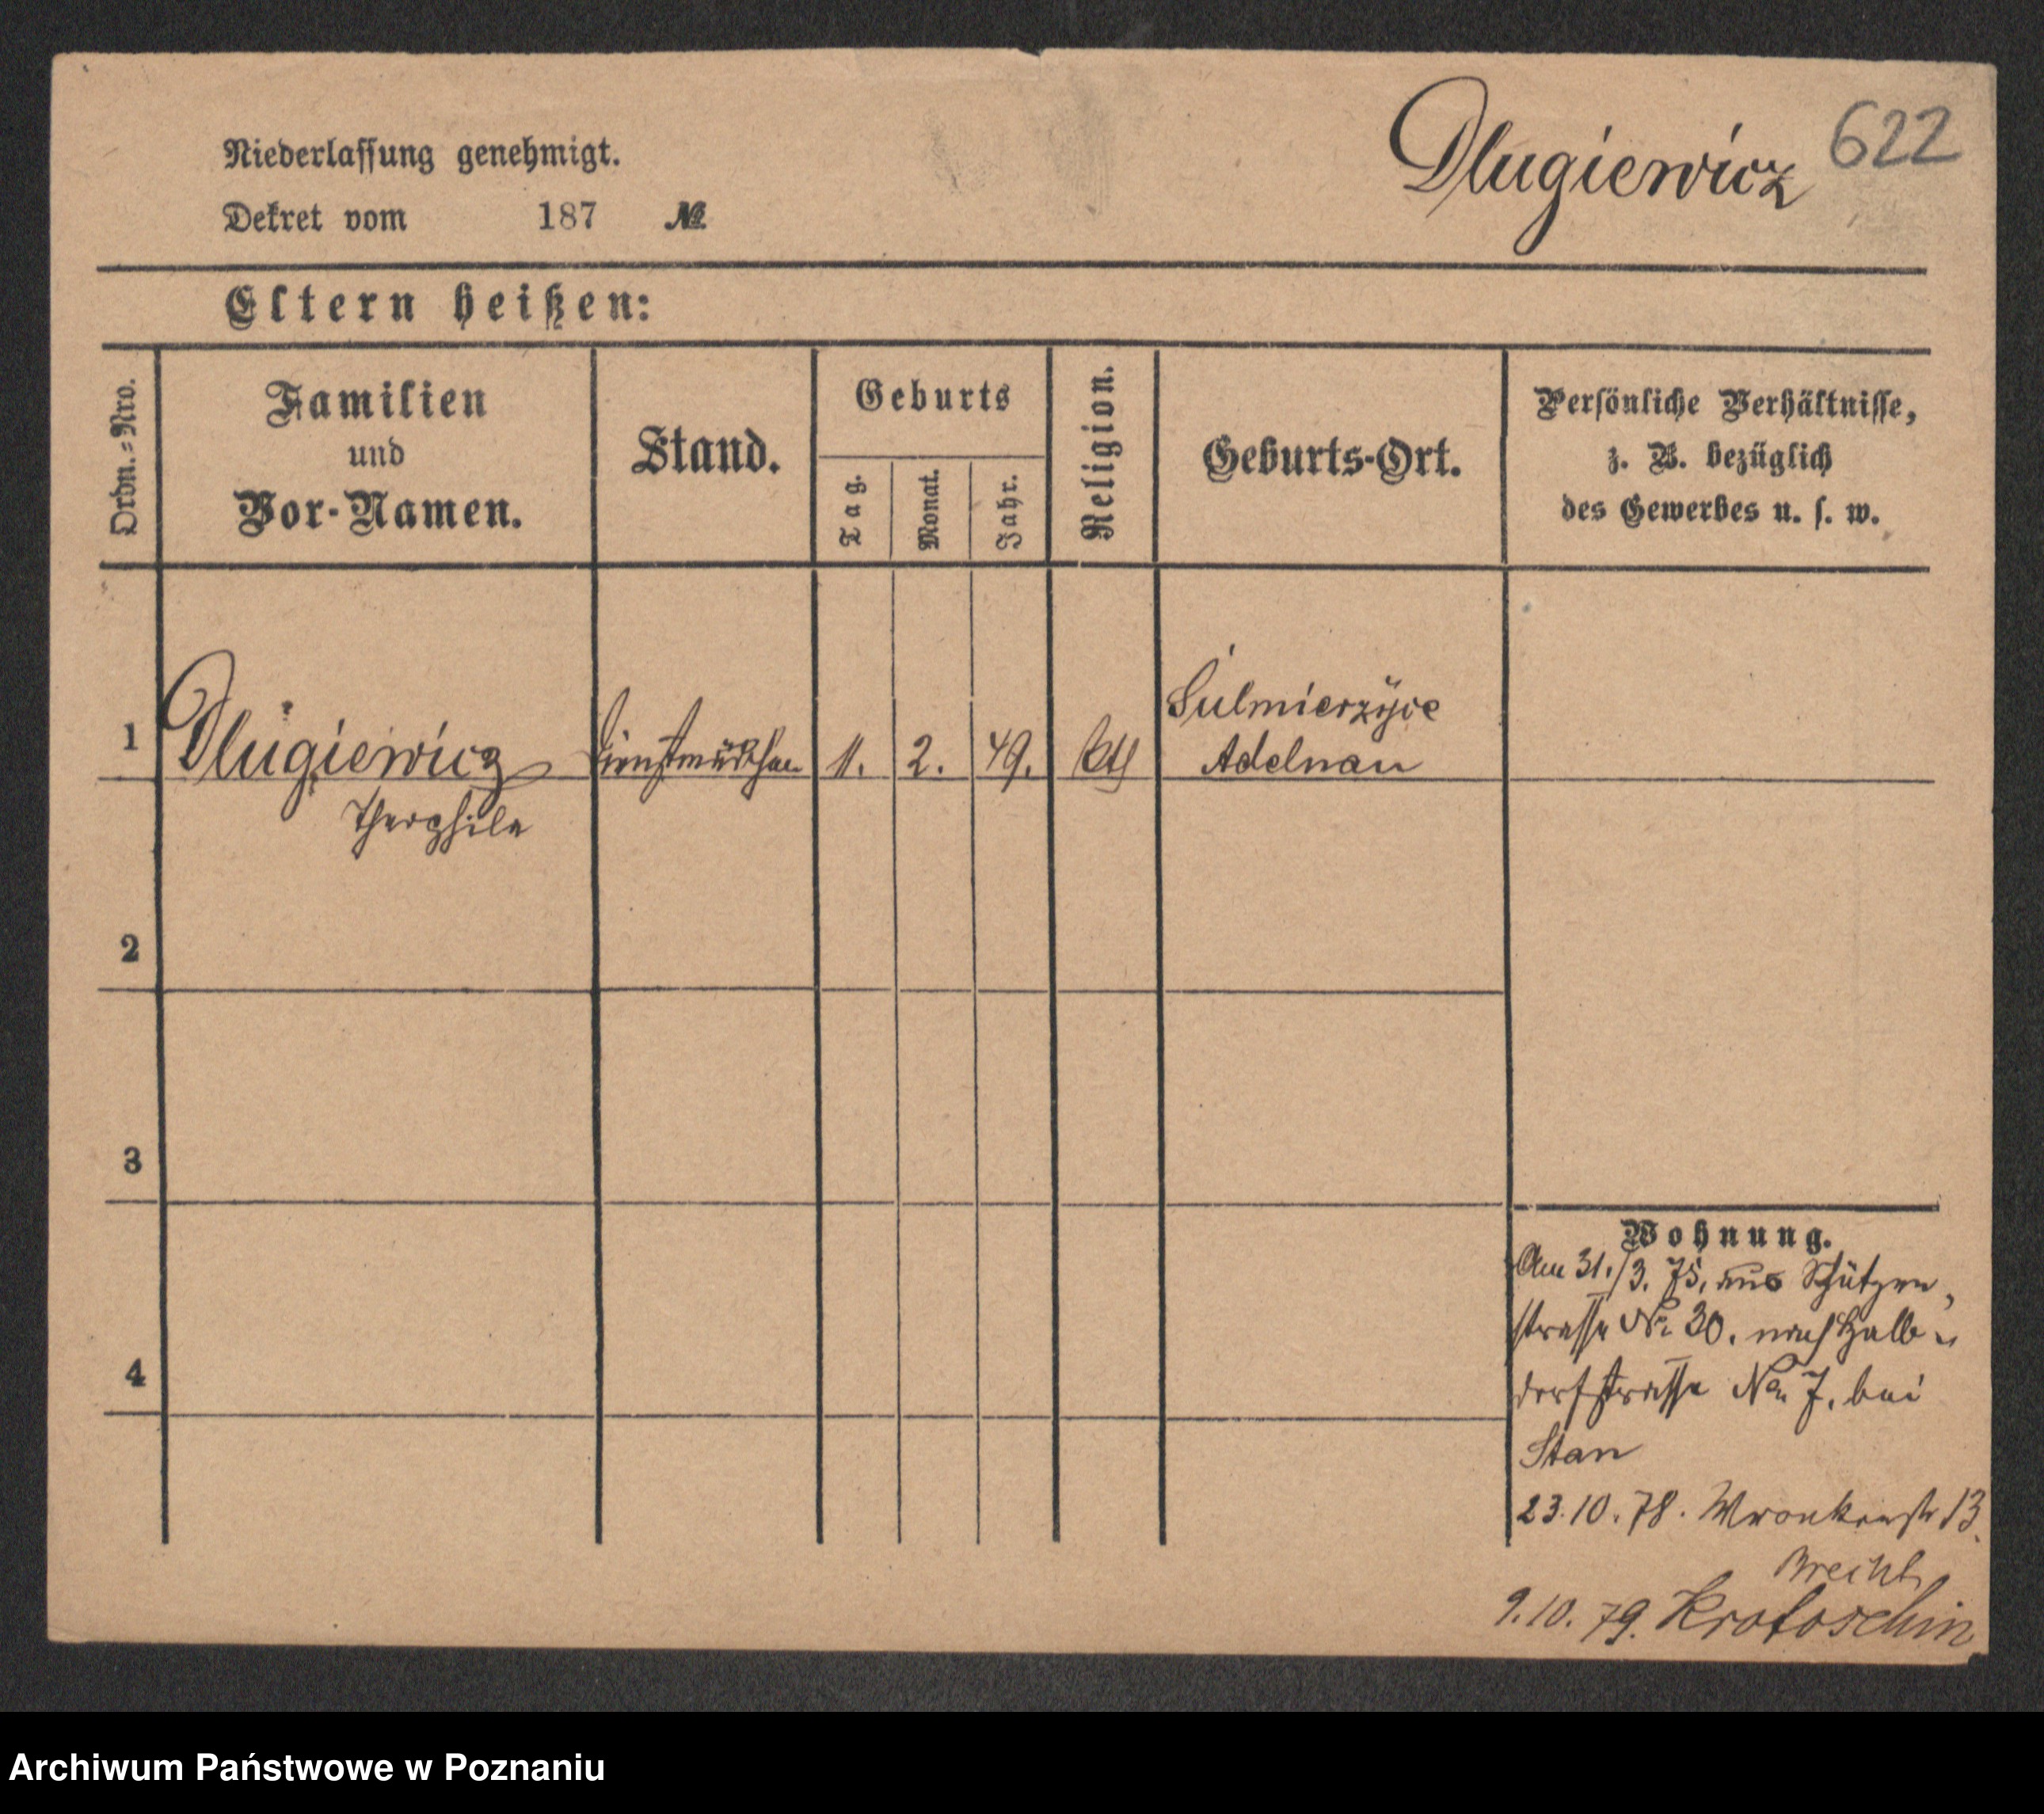 Dlugiewicz 622
Niederlassung genehmigt.
Dekret vom 187 №
Eltern heißen:
Ordn.-Nro.
Familien
und
Vor-Namen.
Stand.
Geburts
Tag.
Monat.
Jahr.
Religion.
Geburts-Ort.
Persönliche Verhältnisse,
z. B. bezüglich
des Gewerbes u. s. w.
1 Dlugiewicz Dienstmädchen 11. 2. 49. kth Sulmierzyce
Adelnau
Theophila
2
3
4
Wohnung.
Am 31./3. 75, aus Schützen
strasse No. 30. nach Halb-
dorfstrasse No. 7. bei
Stan
23.10.78. Wronkerstr 13.
9.10.79. Krotoschin
Archiwum Państwowe w Poznaniu